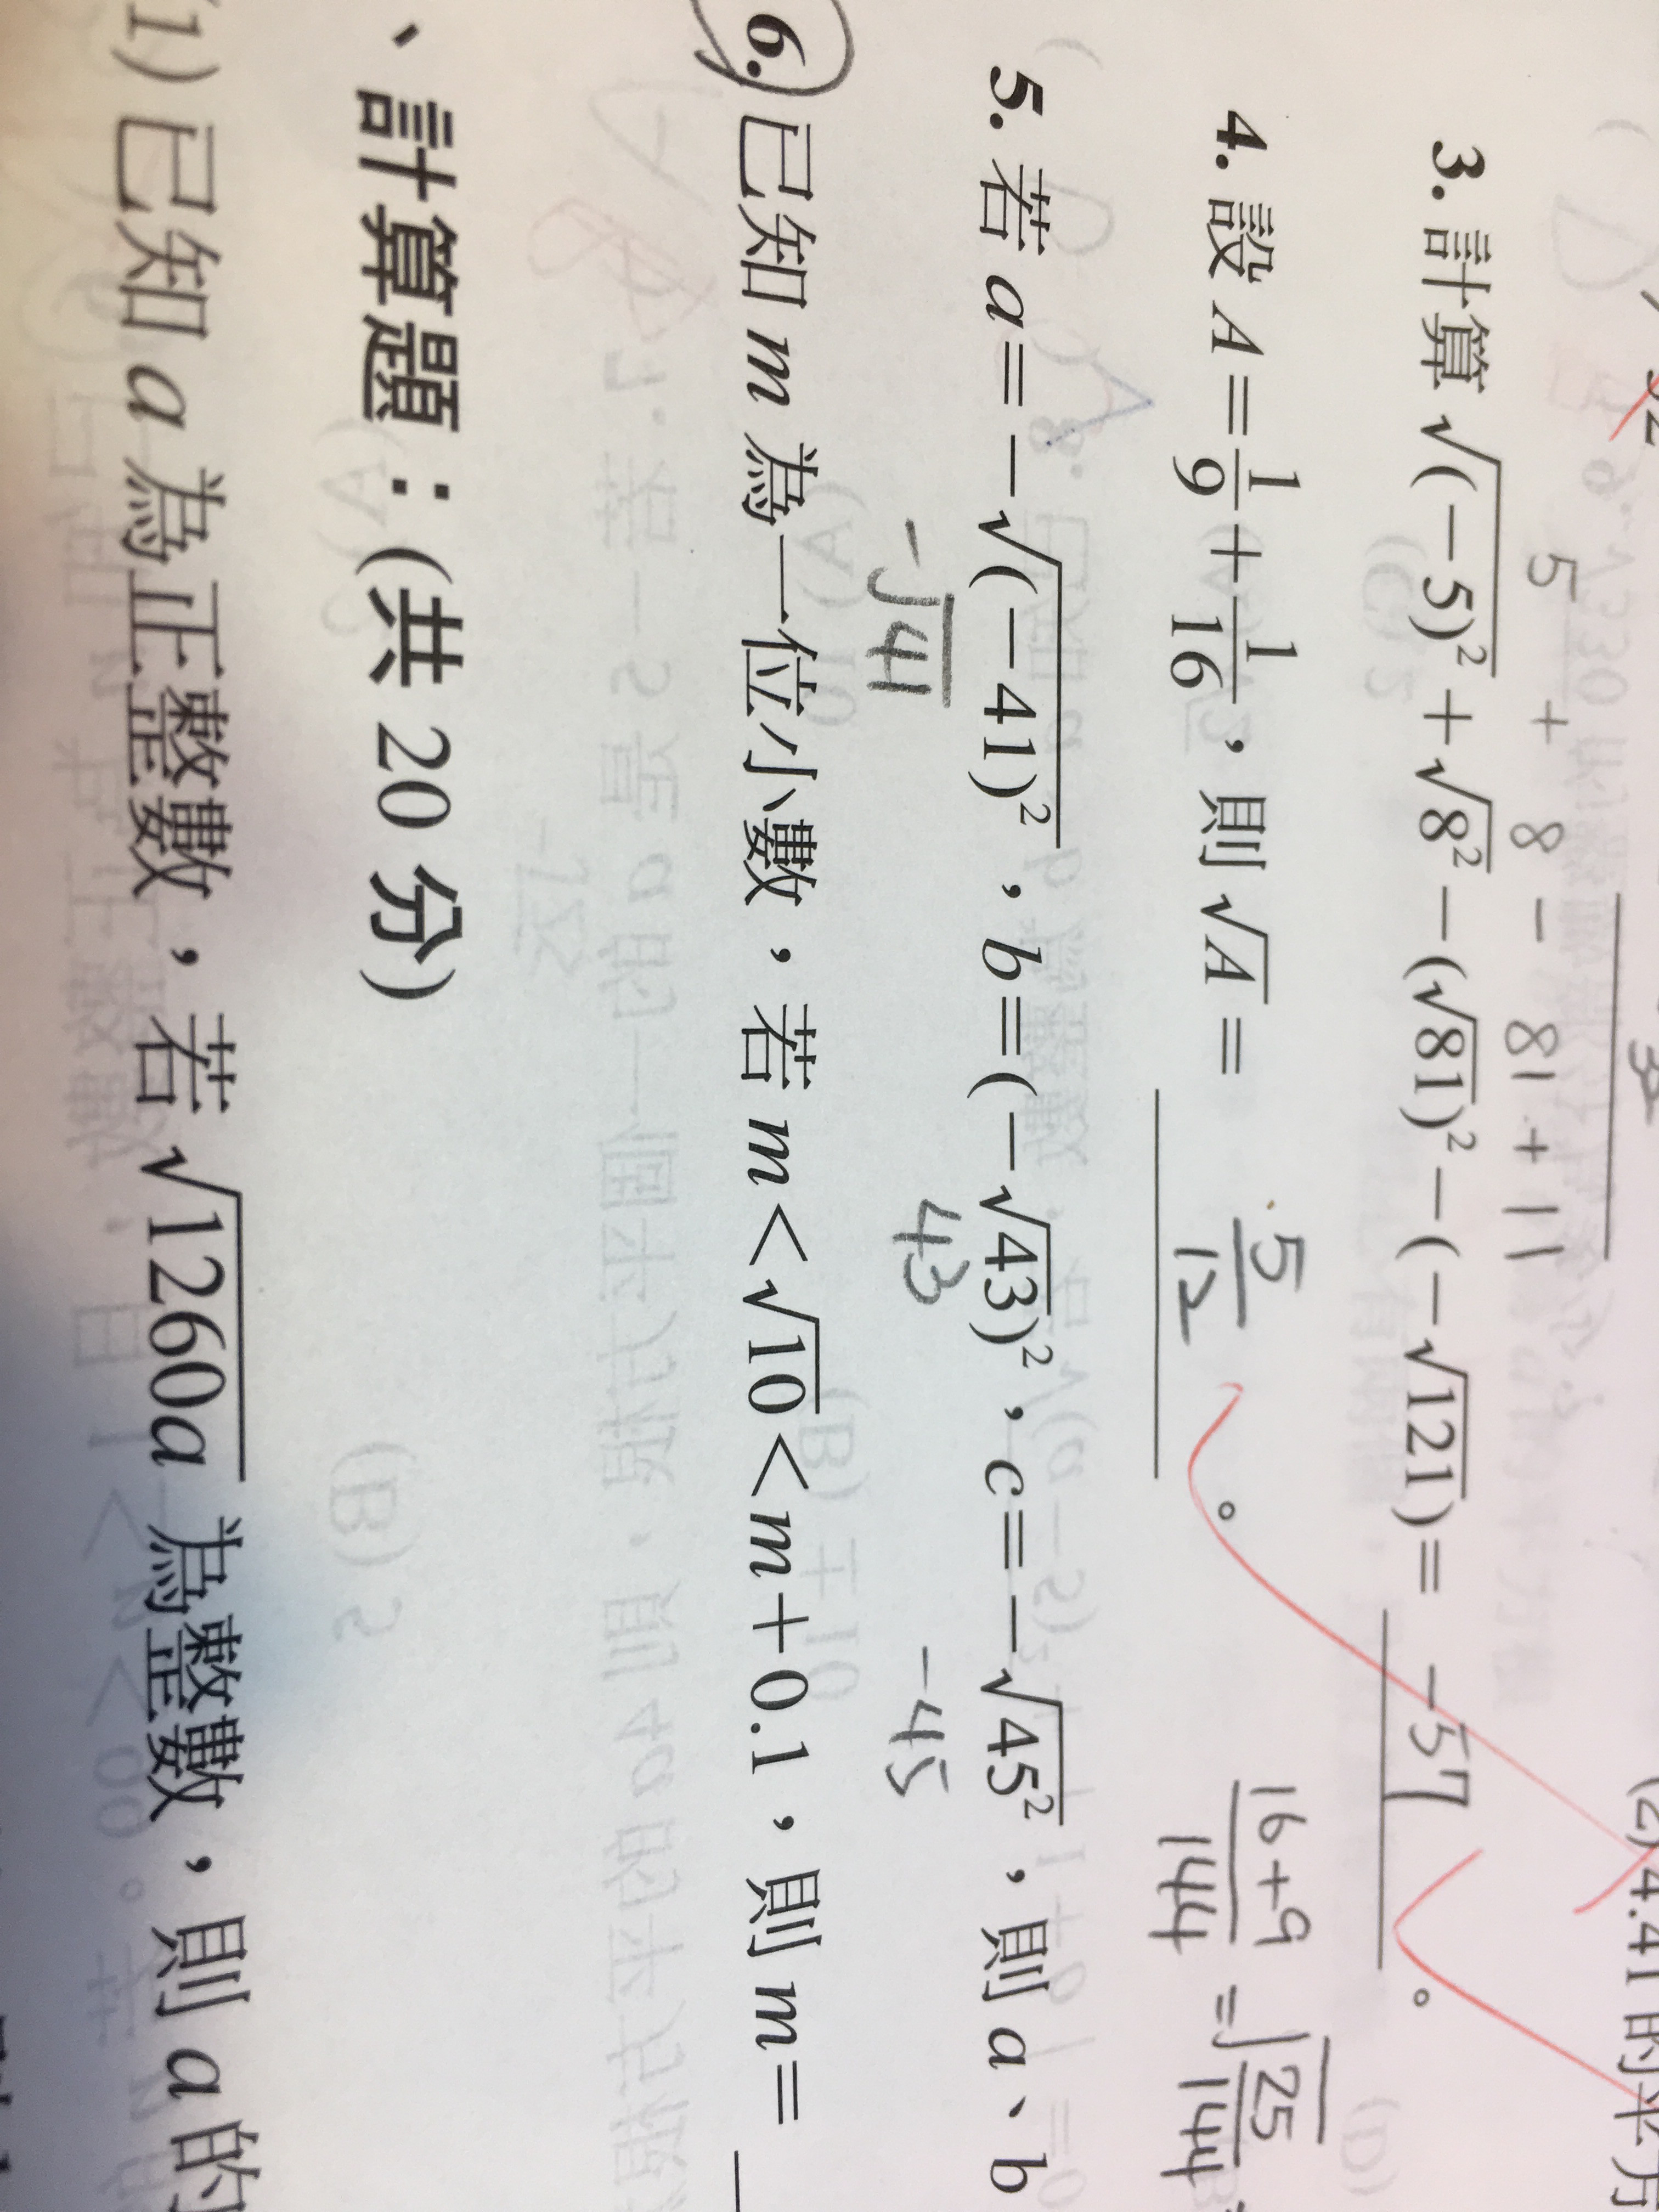 (2) 4.41 的平方
5 + 8 - 81 + 11
3. 計算 √(-5)² + √8² - (√81)² - (-√121) = -57 。
16+9/144 = √25/144
4. 設 A = 1/9 + 1/16，則 √A = 5/12 。
5. 若 a = -√(-41)²，b = (-√43)²，c = -√45²，則 a、b
-√41 43 -45
6. 已知 m 為一位小數，若 m < √10 < m + 0.1，則 m =
、計算題：(共 20 分)
(1) 已知 a 為正整數，若 √1260a 為整數，則 a 的